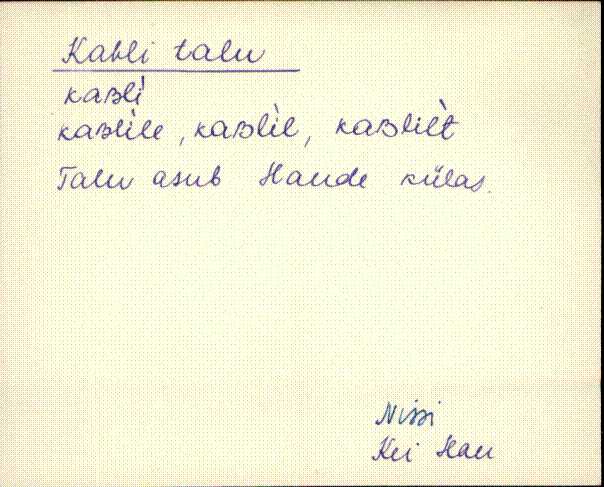 Kabli talu
kaʙli̇̀
kaʙli̇̀le, kaʙli̇̀l, kaʙlilt̀
Talu asub Haude külas.
Nissi
Kei Hau